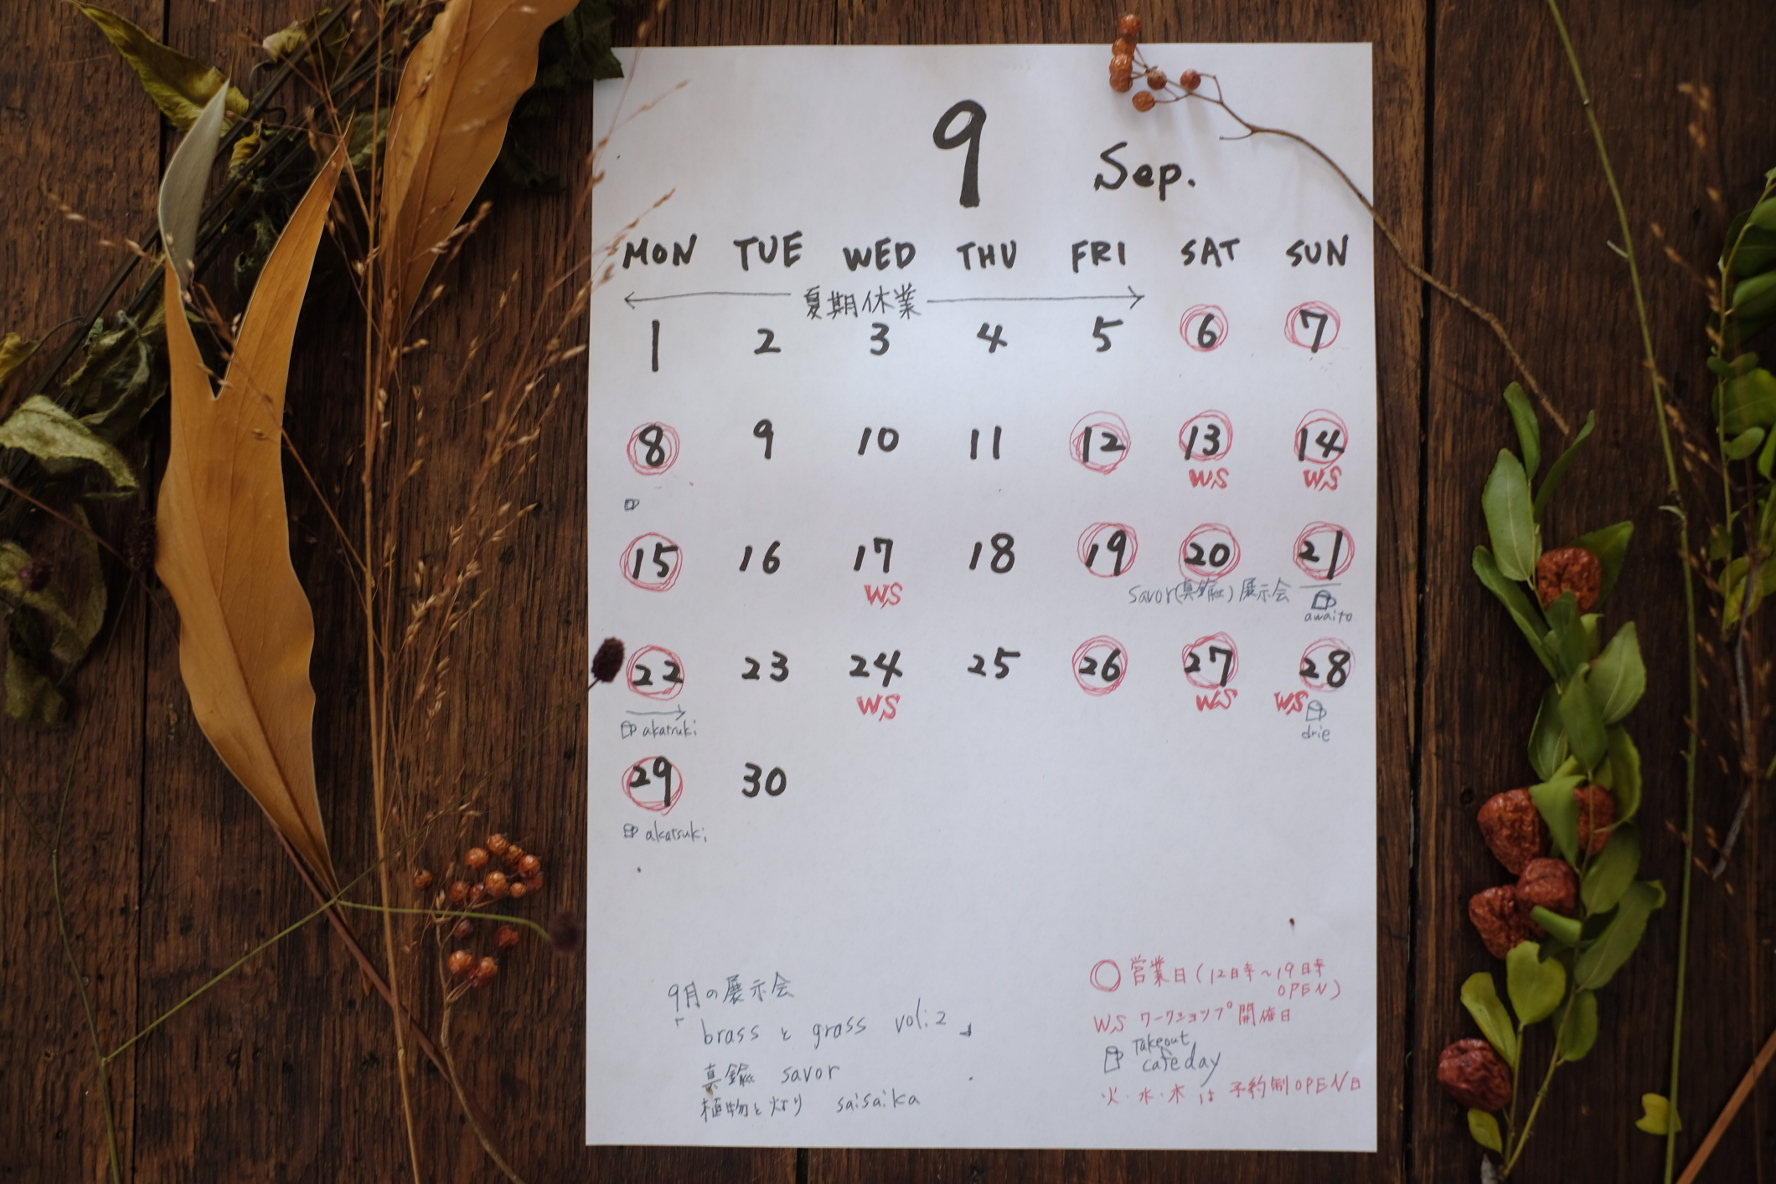 9 Sep.
MON TUE WED THU FRI SAT SUN
夏期休業
1 2 3 4 5 6 7
8 9 10 11 12 13 14
WS WS
15 16 17 18 19 20 21
WS savor(真鍮) 展示会
awaito
22 23 24 25 26 27 28
WS WS WS
akatsuki drie
29 30
akatsuki
9月の展示会
「brass と grass vol:2」
真鍮 savor
植物と灯り saisaika
営業日(12時〜19時
OPEN)
WS ワークショップ開催日
Takeout
cafe day
火・水・木は予約制OPEN日